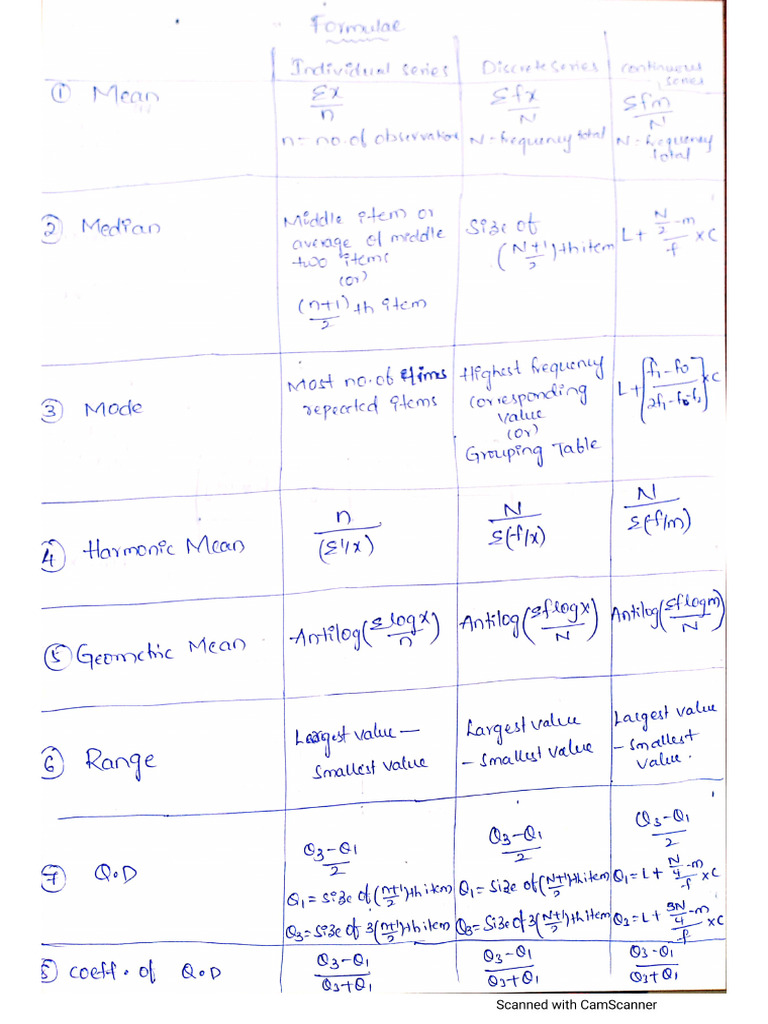 Formulae
Individual series Discrete series continuous series
① Mean Σx/n Σfx/N Σfm/N
n = no. of observation N = frequency total N = frequency total
② Median Middle item or average of middle two items (or) (n+1)/2 th item Size of ((N+1)/2) th item L + (N/2 - m)/f × C
③ Mode Most no. of times repeated items Highest frequency corresponding value (or) Grouping Table L + [(f₁ - f₀)/(2f₁ - f₀ - f₂)] × C
④ Harmonic Mean n/(Σ1/x) N/Σ(f/x) N/Σ(f/m)
⑤ Geometric Mean Antilog(Σlogx/n) Antilog(Σflogx/N) Antilog(Σflogm/N)
⑥ Range Largest value – Smallest value Largest value – Smallest value Largest value – Smallest value.
⑦ Q.D (Q₃-Q₁)/2 (Q₃-Q₁)/2 (Q₃-Q₁)/2
Q₁ = size of ((n+1)/2) th item Q₁ = size of ((N+1)/2) th item Q₁ = L + (N/4 - m)/f × C
Q₃ = Size of 3((n+1)/2) th item Q₃ = Size of 3((N+1)/2) th item Q₃ = L + (3N/4 - m)/f × C
⑧ coeff. of Q.D (Q₃-Q₁)/(Q₃+Q₁) (Q₃-Q₁)/(Q₃+Q₁) (Q₃-Q₁)/(Q₃+Q₁)
Scanned with CamScanner